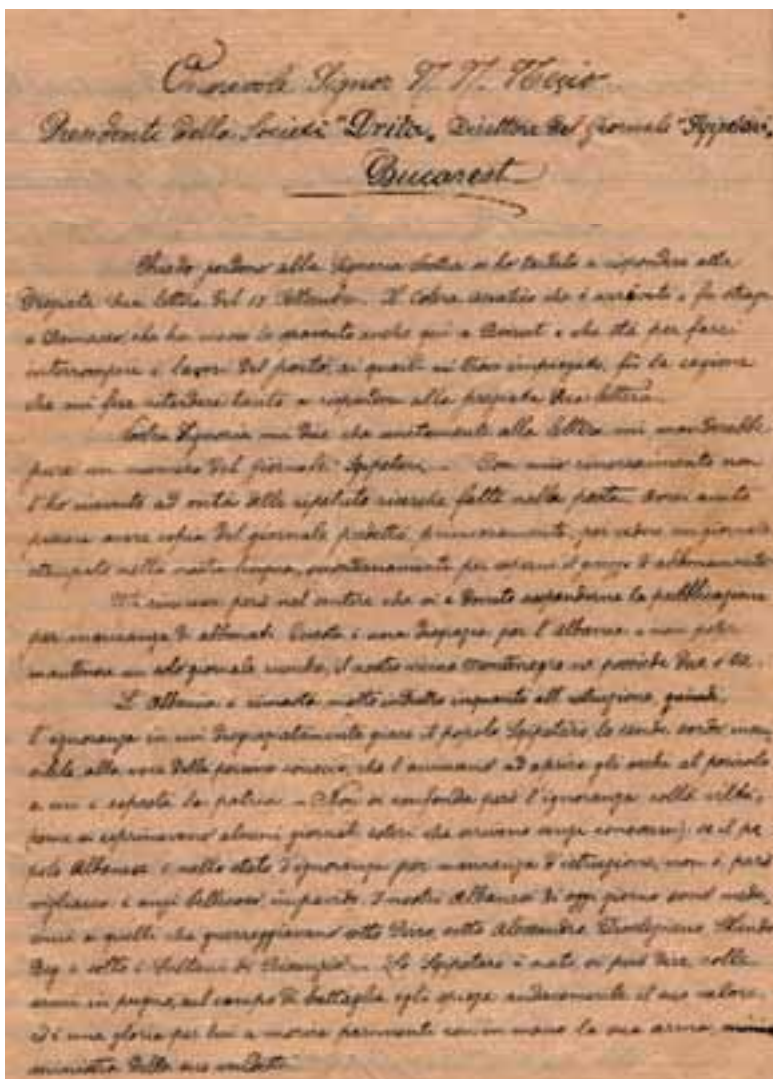 Onorevole Signor N. N. Nacio
Presidente della Società "Drita„ Direttore del giornale "Sqipetari„
Bucarest
Chiedo perdono alla Signoria Vostra se ho tardato a rispondere alla
pregiata sua lettera del 17 Settembre. Il Colera asiatico che è arrivato e fa strage
a Damasco, che ha messo lo spavento anche qui a Beirut e che sta per farci
interrompere i lavori del porto, ai quali mi trovo impiegato, fu la cagione
che mi fece ritardare tanto a rispondere alla pregiata sua lettera.
Vostra Signoria mi dice che unitamente alla lettera mi manderebbe
pure un numero del giornale Sqipetari. Con mio rincrescimento non
l'ho ricevuto ad onta delle ripetute ricerche fatte nella posta. Avrei avuto
piacere avere copia del giornale predetto, primieramente, per vedere un giornale
stampato nella nostra lingua, secondariamente per sapere il prezzo d'abbonamento
Mi rincresce però nel sentire che si è dovuto sospenderne la pubblicazione
per mancanza di abbonati. Questa è una disgrazia per l'Albania a non poter
mantenere un solo giornale mentre, il nostro vicino Montenegro ne possiede due o tre.
L'Albania è rimasta molto indietro inquanto all'istruzione, quindi,
l'ignoranza in cui disgraziatamente giace il popolo Sqipetaro, lo rende sordo
alla voce delle persone che l'animano ad aprire gli occhi al pericolo
a cui è esposta la patria. Non si confonda però l'ignoranza colla viltà,
come si esprimevano alcuni giornali esteri che scrivono senza conoscerci; se il po
polo Albanese è nello stato d'ignoranza per mancanza d'istruzione, non è però
vigliacco è anzi bellicoso impavido. I nostri Albanesi di oggi giorno sono
a quelli che guerreggiavano sotto Pirro, sotto Alessandro,
Beg e sotto i Sultani di Bisanzio. Lo Sqipetaro è nato, si può dire, colle
armi in pugno, sul campo di battaglia egli spiega audacemente il suo valore
ed è una gloria per lui a morire con in mano la sua arma,
ministra della sua vendetta.